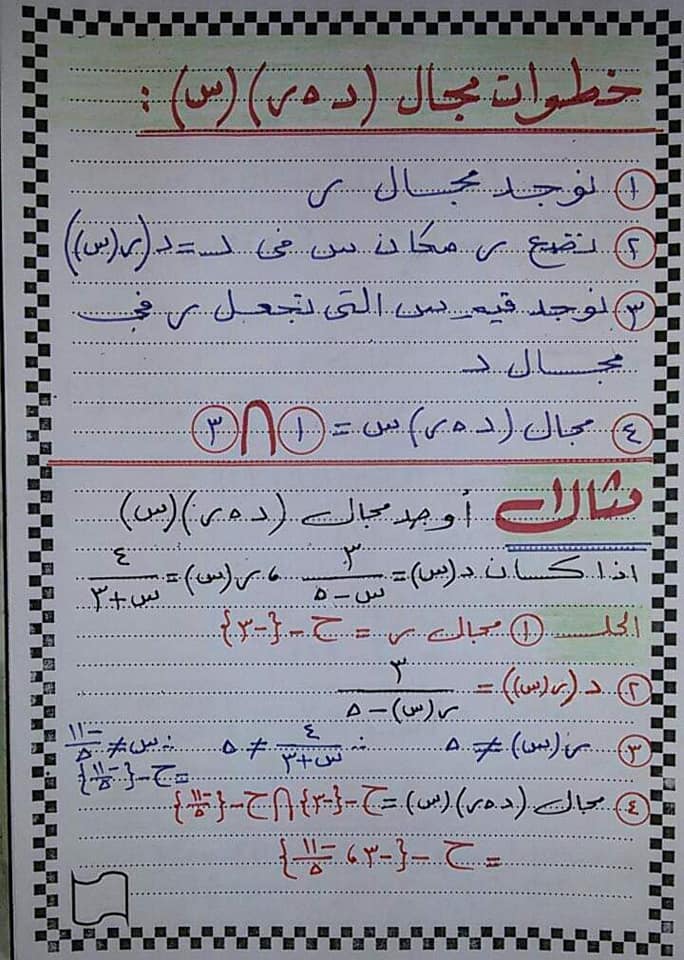 خطوات مجال (د ه ر)(س) :
١ نوجد مجال ر
٢ نضع ر مكان س فى د = د(ر(س))
٣ نوجد قيم س التى تجعل ر فى
مجال د
٤ مجال (د ه ر) س = ١ ∩ ٣
مثال ١ أوجد مجال (د ه ر)(س)
اذا كان د(س) = ٣/(س - ٥) ، ر(س) = ٤/(س + ٣)
الحل ١ مجال ر = ح - {-٣}
٢ د(ر(س)) = ٣/(ر(س) - ٥)
٣ ر(س) ≠ ٥ ∴ ٤/(س + ٣) ≠ ٥ ∴ س ≠ -١١/٥
= ح - {-١١/٥}
٤ مجال (د ه ر)(س) = ح - {-٣} ∩ ح - {-١١/٥}
= ح - {-٣ ، -١١/٥}